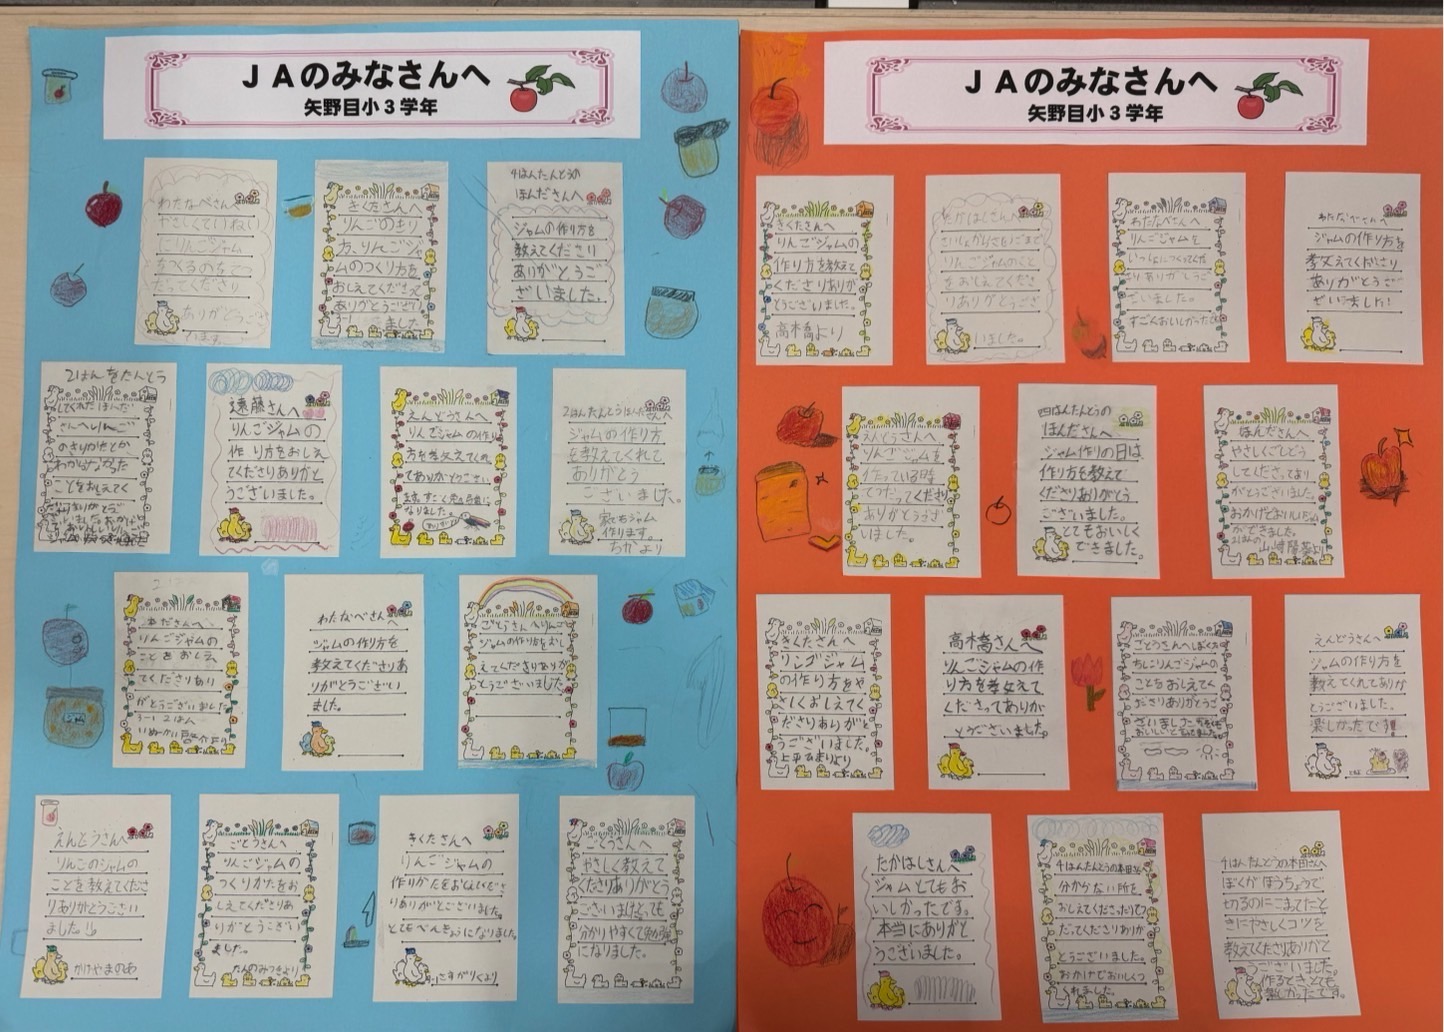 JAのみなさんへ
矢野目小3学年
わたなべさんへ
やさしくていねい
にりんごジャム
をつくるのをてつ
だってくださり
ありがとうござ
います。
きくたさんへ
りんごのきり
方、りんごジャ
ムのつくり方を
おしえてくださって
ありがとうござい
ました
4はんたんとうの
ほんださんへ
ジャムの作り方を
教えてくださり
ありがとうご
ざいました。
2はんをたんとう
してくれたほんだ
さんへりんご
のきりかたとか
わからなかった
ことをおしえてく
遠藤さんへ
りんごジャムの
作り方をおしえ
てくださりありがと
うございました。
えんどうさんへ
りんごジャムの作り
方を教えてくれ
てありがとうござい
ます。すごく勉強に
なりました。
ありがとう
2はんたんとうほんださんへ
ジャムの作り方
を教えてくれて
ありがとう
ございました。
家でもジャム
作ります。
ちかより
りんごジャムの
ことをおしえ
てくださりあり
がとうございました
わたなべさんへ
ジャムの作り方を
教えてくださりあ
りがとうござい
ました。
ごとうさんへりんご
ジャムの作り方をおし
えてくださりありが
とうございました
えんどうさんへ
りんごのジャムの
ことを教えてくださ
りありがとうござい
ました。
かけやまのあ
ごとうさんへ
りんごジャムの
つくりかたをお
しえてくださりあ
りがとうござい
ました。
きくたさんへ
りんごジャムの
作りかたをおしえてくださ
りありがとうございました。
とてもべんきょうになりました。
ごとうさんへ
やさしく教えて
くださりありがとう
ございましたとても
分かりやすくて勉強
になりました。
JAのみなさんへ
矢野目小3学年
きくたさんへ
りんごジャムの
作り方を教えて
くださりありが
とうございました。
高木橋より
たかはしさんへ
りんごジャムのこと
をおしえてくださ
りありがとうござ
いました。
わたなべさんへ
りんごジャムを
いっしょにつくってくださ
りありがとうご
ざいました。
すごくおいしかったです
わたなべさんへ
ジャムの作り方を
教えてくださり
ありがとうご
ざいました!
えんどうさんへ
りんごジャムを
作っている時
てつだってくださり
ありがとうござ
いました。
四はんたんとうの
ほんださんへ
ジャム作りの日は
作り方を教えて
くださりありがとう
ございました。
とてもおいしく
できました。
ほんださんへ
やさしくごしどう
してくださってあり
がとうございました。
おかげでおいしいジャム
ができました。
きくたさんへ
リンゴジャム
の作り方をや
さしくおしえてく
ださりありがと
うございました。
高木橋さんへ
りんごジャムの作
り方を教えて
くださってありが
とうございました。
ごとうさんへぼくた
ちにりんごジャムの
ことをおしえてく
ださりありがとうご
ざいました
えんどうさんへ
ジャムの作り方を
教えてくれてありが
とうございました。
楽しかったです!!
たかはしさんへ
ジャムとてもお
いしかったです。
本当にありがと
うございました。
4はんたんとうの本田さんへ
分からない所を、
おしえてくださったりてつ
だってくださりありが
とうございました。
おかげでおいしくつ
くれました。
4はんたんとうの本田さんへ
ぼくがほうちょうで
切るのにこまってたと
きにやさしくコツを
教えてくださりありがと
うございました。
作るときとても
楽しかったです。